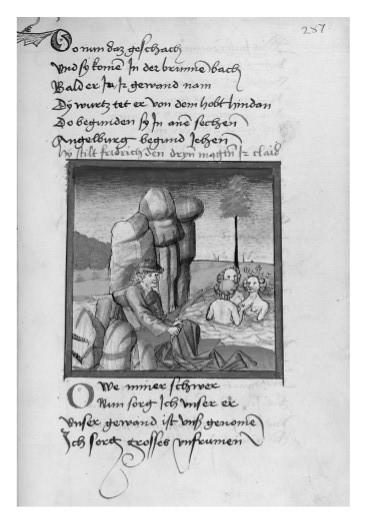 257
Do nun daz geschach
Vnd sy komē In der brunnē bach
Bald er In Ir gewand nam
Dy wurtz tet er von dem hobt hindan
Do begunden sy In anē sechen
Angelburg begund Jehen
hy stilt fridrich den dryn magtn Ir claid
Owe mȳner schwer
Nun sorg Ich vnser er
Vnser gewand ist vnß genomē
Ich sorg grosses vnfrumen